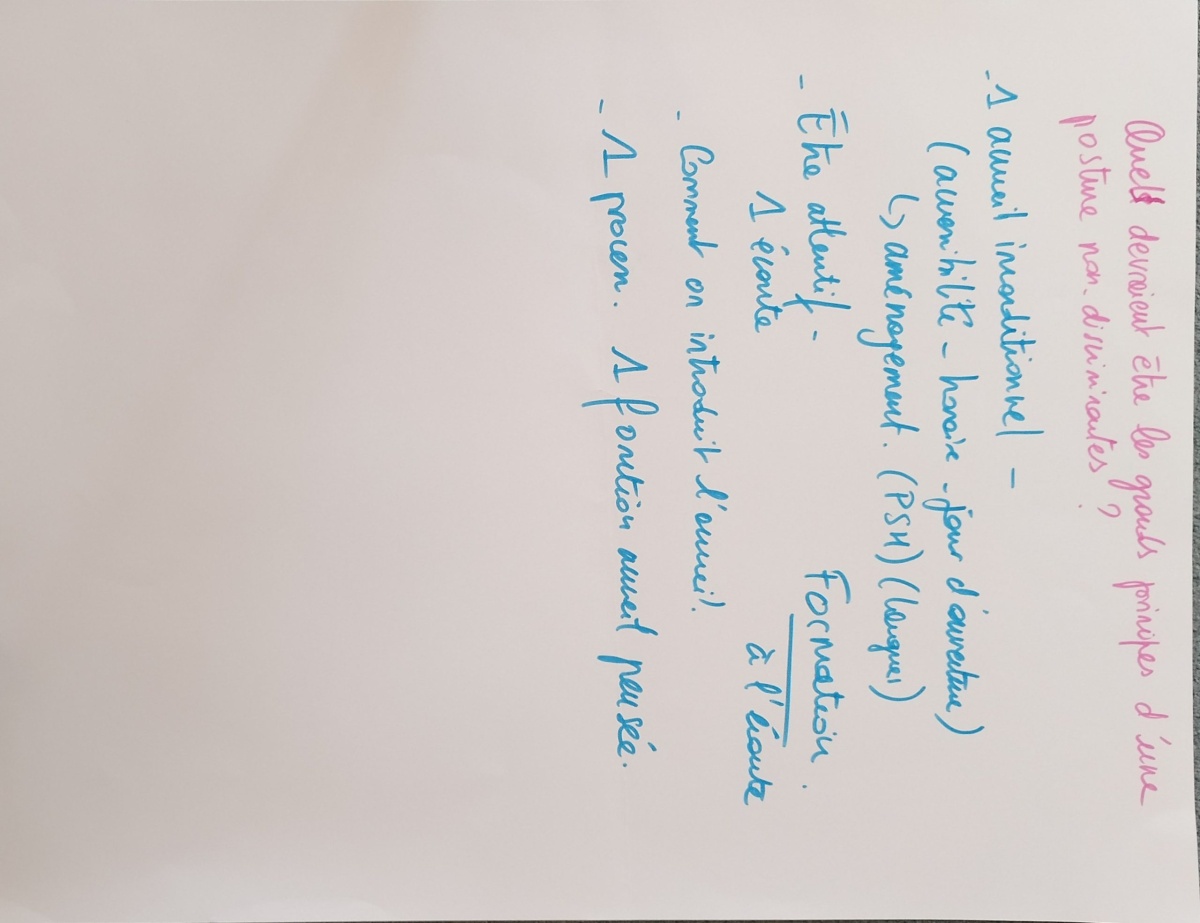 Quels devraient être les grands principes d'une
posture non-discriminantes ?
- 1 accueil inconditionnel -
(accessibilité - horaire - jour d'ouverture)
↳ aménagement. (PSH) (langues)
- Être attentif - Formation.
1 écoute à l'écoute
- Comment on introduit l'accueil.
- 1 process. 1 fonction accueil pensée.